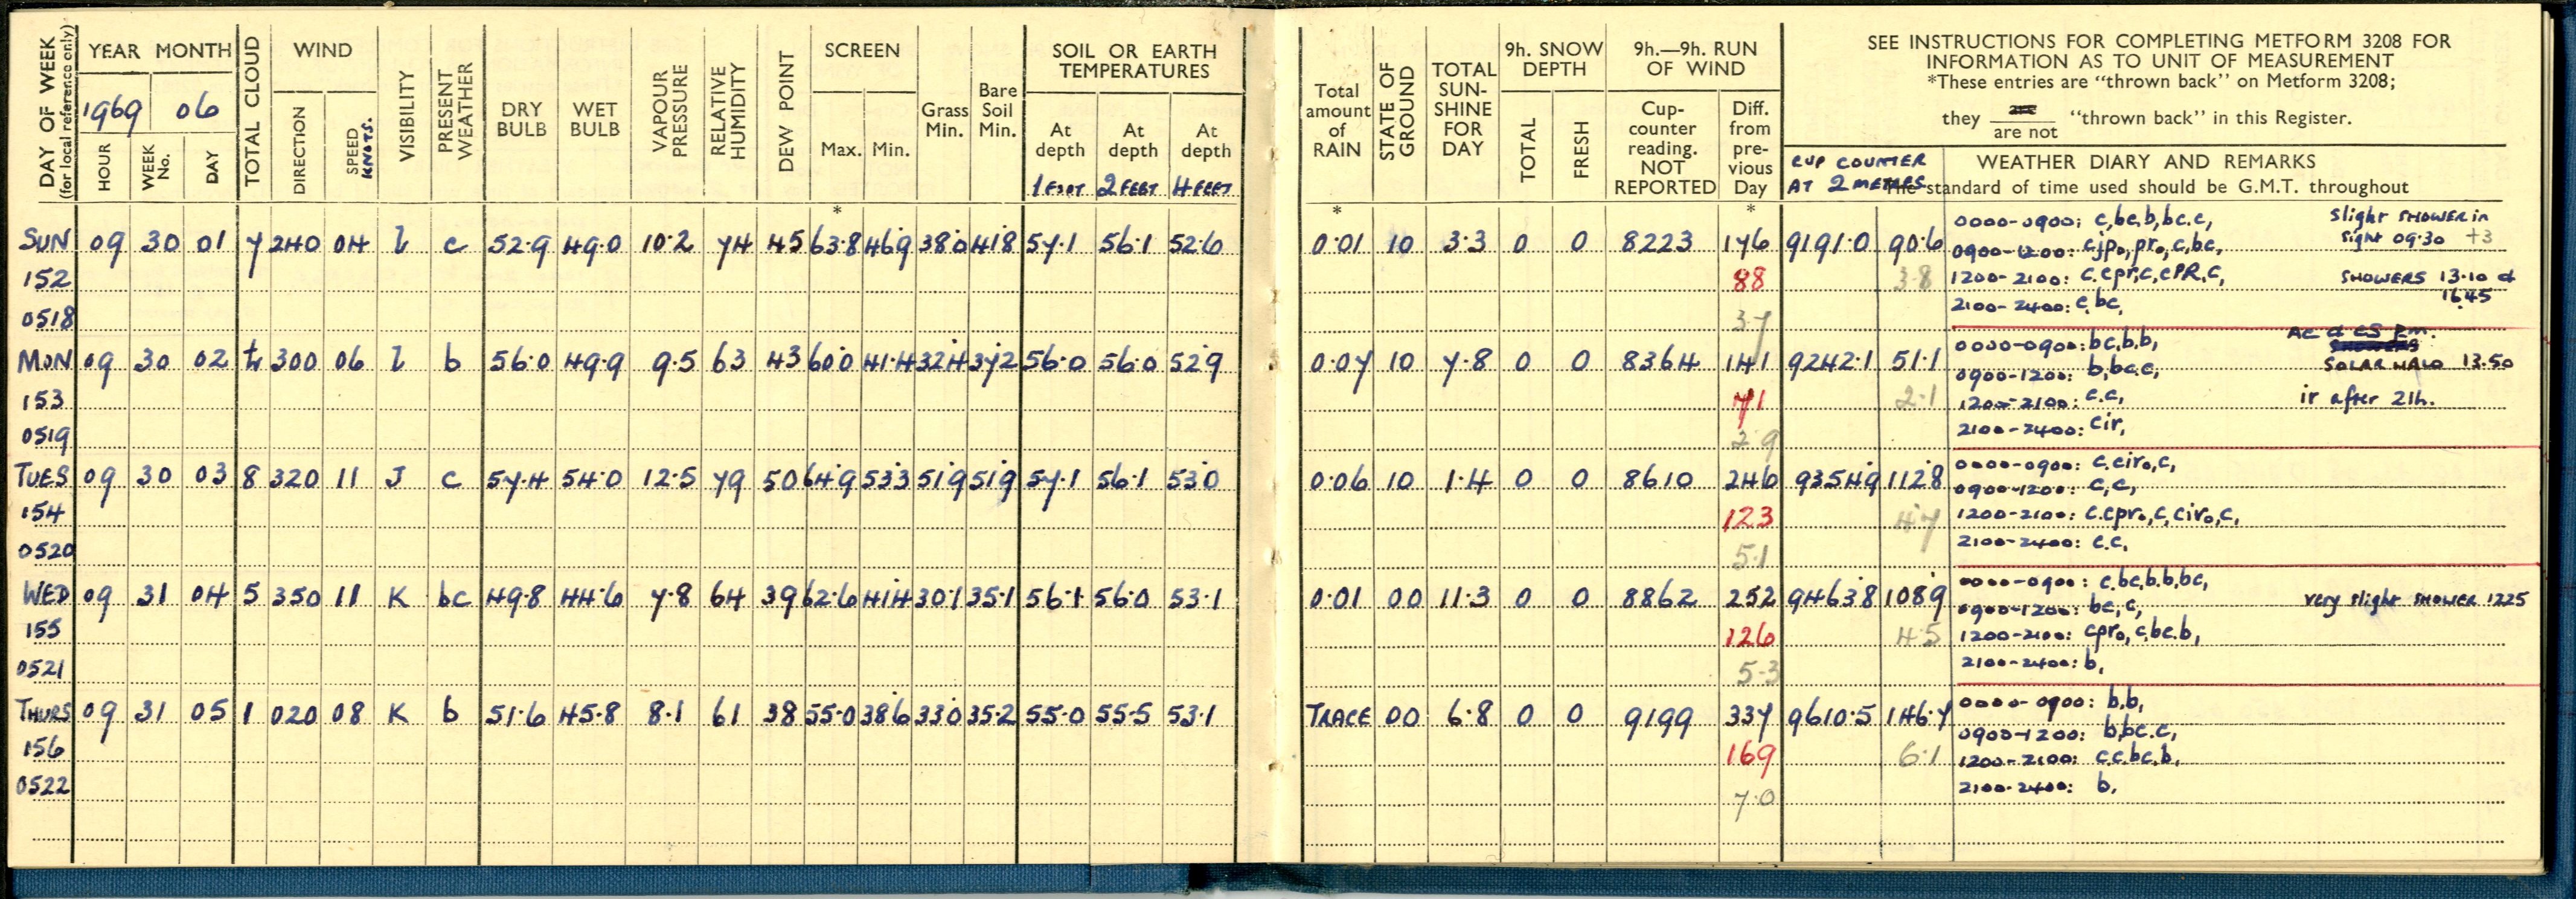 DAY OF WEEK (for local reference only)
YEAR MONTH
1969 06
HOUR WEEK No. DAY
TOTAL CLOUD
WIND
DIRECTION SPEED KNOTS.
VISIBILITY
PRESENT WEATHER
DRY BULB
WET BULB
VAPOUR PRESSURE
RELATIVE HUMIDITY
DEW POINT
SCREEN
Max. Min.
Grass Min.
Bare Soil Min.
SOIL OR EARTH TEMPERATURES
At depth 1 FOOT
At depth 2 FEET
At depth 4 FEET
Total amount of RAIN
STATE OF GROUND
TOTAL SUN-SHINE FOR DAY
9h. SNOW DEPTH
TOTAL FRESH
9h.—9h. RUN OF WIND
Cup-counter reading. NOT REPORTED
Diff. from pre-vious Day
SEE INSTRUCTIONS FOR COMPLETING METFORM 3208 FOR
INFORMATION AS TO UNIT OF MEASUREMENT
*These entries are "thrown back" on Metform 3208;
they are not "thrown back" in this Register.
CUP COUNTER AT 2 METRES
WEATHER DIARY AND REMARKS
The standard of time used should be G.M.T. throughout
* * *
SUN 09 30 01 7 240 04 l c 52.9 49.0 10.2 74 45 63.8 46.9 38.0 41.8 57.1 56.1 52.6 0.01 10 3.3 0 0 8223 176 9191.0 90.6
152 88 3.8
0518 3.7
0000-0900: c,bc,b,bc.c,
0900-1200: cjpo,pro,c,bc,
1200-2100: c.cpr,c,cPR,c,
2100-2400: c,bc,
Slight SHOWER in
sight 09.30 +3
SHOWERS 13.10 &
16.45
MON 09 30 02 300 06 l b 56.0 49.9 9.5 63 43 60.0 41.4 32.4 37.2 56.0 56.0 52.9 0.07 10 7.8 0 0 8364 141 9242.1 51.1
153 71 2.1
0519 2.9
0000-0900: bc,b,b,
0900-1200: b,bc.c,
1200-2100: c.c,
2100-2400: cir,
Ac & CS p.m.
SOLAR HALO 13.50
ir after 21h.
TUES 09 30 03 8 320 11 J c 57.4 54.0 12.5 79 50 64.9 53.3 51.9 51.9 57.1 56.1 53.0 0.06 10 1.4 0 0 8610 246 9354.9 112.8
154 123 4.7
0520 5.1
0000-0900: c.ciro,c,
0900-1200: c,c,
1200-2100: c.cpro,c,ciro,c,
2100-2400: c.c,
WED 09 31 04 5 350 11 K bc 49.8 44.6 7.8 64 39 62.6 41.4 30.1 35.1 56.1 56.0 53.1 0.01 00 11.3 0 0 8862 252 9463.8 108.9
155 126 4.5
0521 5.3
0000-0900: c,bc,b.b,bc,
0900-1200: bc,c,
1200-2100: cpro,c,bc.b,
2100-2400: b,
very slight SHOWER 1225
THURS 09 31 05 1 020 08 K b 51.6 45.8 8.1 61 38 55.0 38.6 33.0 35.2 55.0 55.5 53.1 TRACE 00 6.8 0 0 9199 337 9610.5 146.7
156 169 6.1
0522 7.0
0000-0900: b,b,
0900-1200: b,bc.c,
1200-2100: c.c.bc.b,
2100-2400: b,